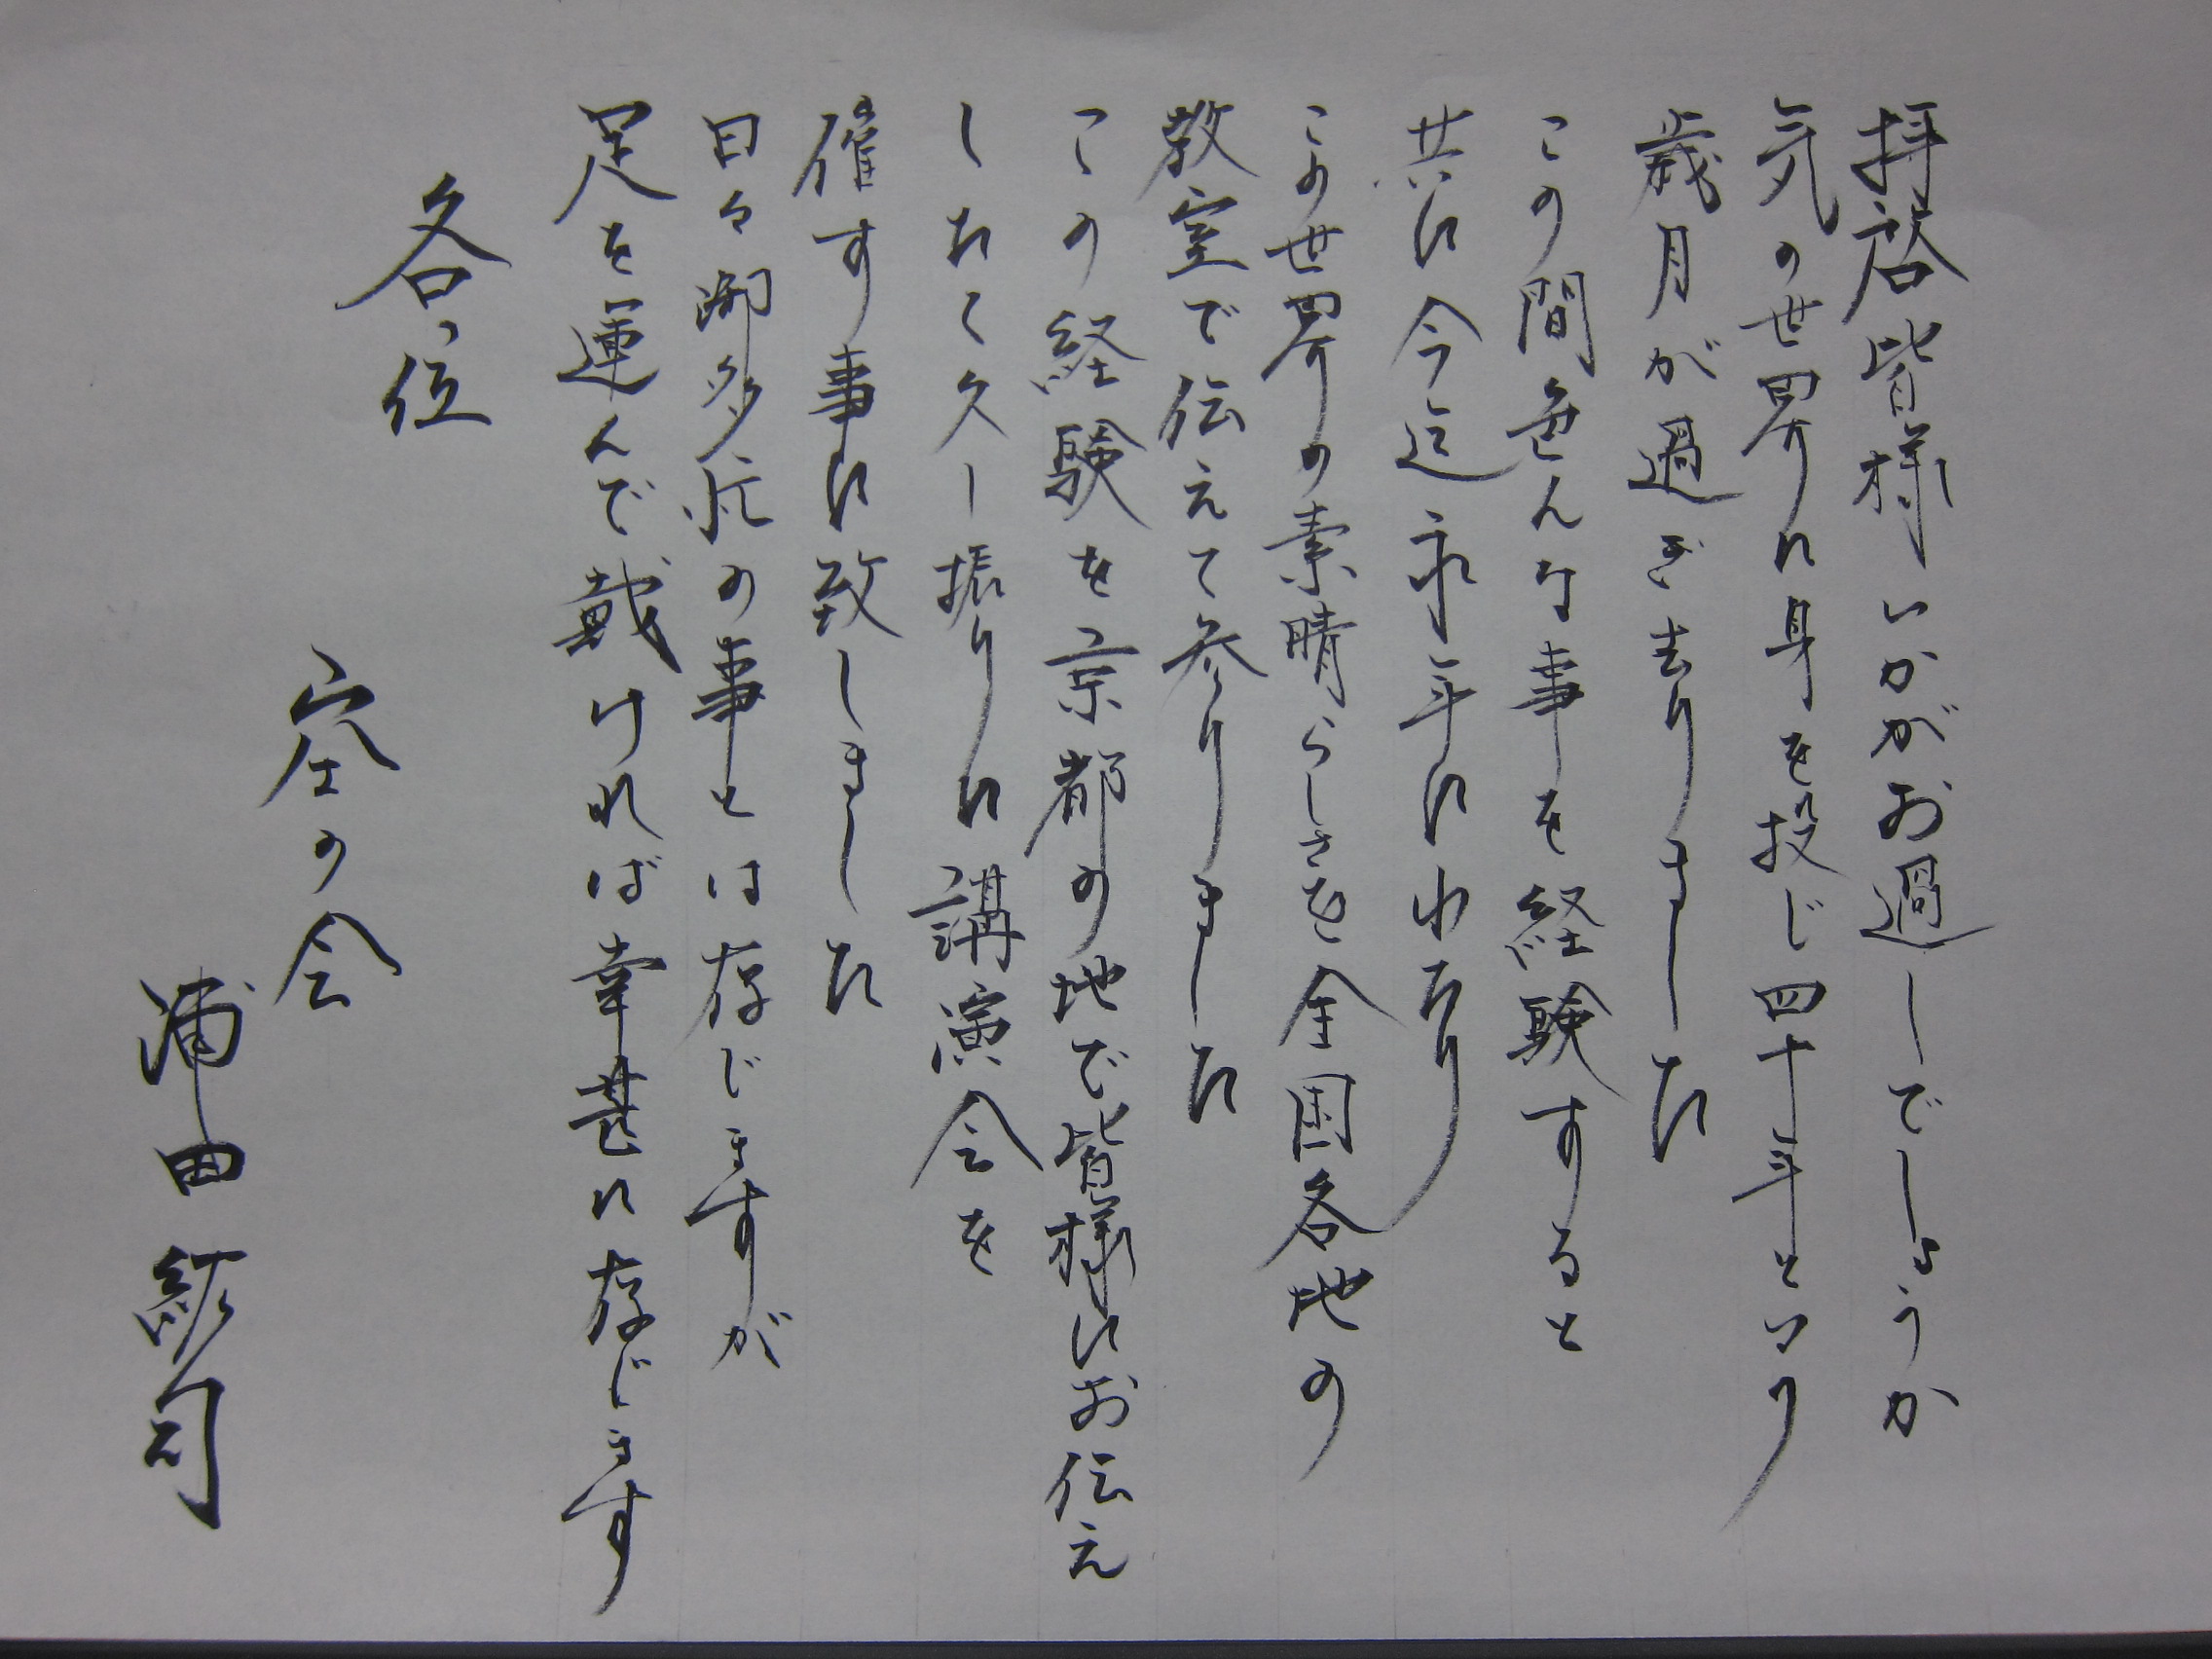 拝啓皆様いかがお過しでしょうか
気の世界に身を投じ四十年という
歳月が過ぎ去りました
この間色んな事を経験すると
共に今迄永年にわたり
この世界の素晴らしさを全国各地の
教室で伝えて参りました
この経験を京都の地で皆様にお伝え
したく久し振りに講演会を
催す事に致しました
日々御多忙の事とは存じますが
足を運んで戴ければ幸甚に存じます
各位
空の会
浦田紘司